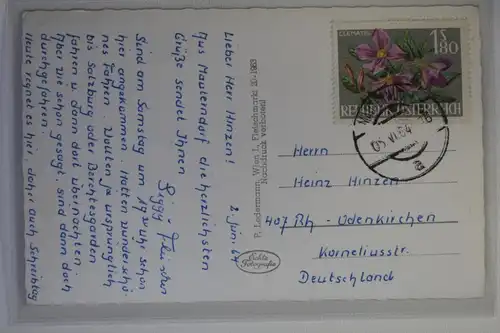 Lieber Herr Hinzen!
2. Juni 64
Aus Mauterndorf die herzlichsten
Grüße sendet Ihnen
Sind am Samstag um 19 Uhr schon
hier angekommen. Hatten wunderschö-
nes Fahren. Wollten ja ursprünglich
bis Salzburg oder Berchtesgaden
fahren u. dann dort übernachten.
Aber wie schon gesagt, sind dann doch
durchgefahren.
Heute regnet es hier, daher auch Schreibtag
P. Ledermann, Wien I., Fleischmarkt 1963
Nachdruck verboten!
Echte
Fotografie
CLEMATIS
1S80
REPUBLIK ÖSTERREICH
VI.64
a
Herrn
Heinz Hinzen
407 Rh-Odenkirchen
Korneliusstr.
Deutschland